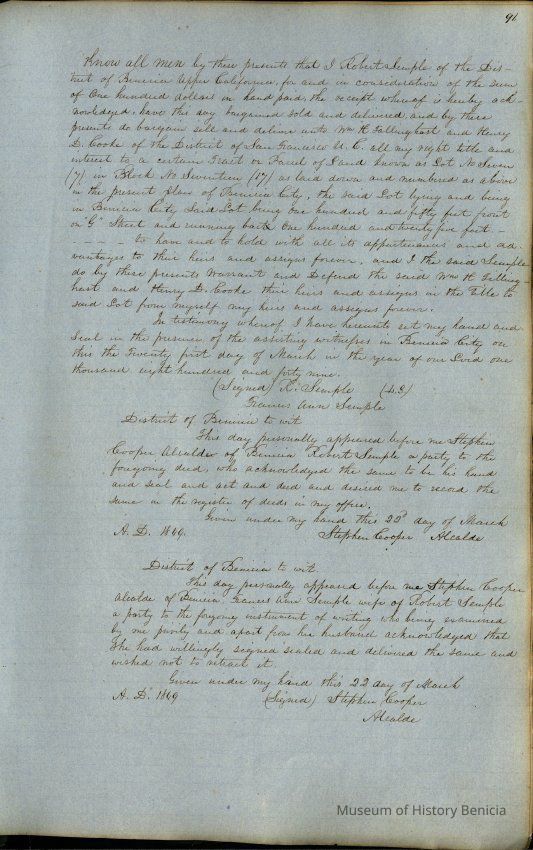 91
Know all men by these presents that I Robert Semple of the Dis-
trict of Benicia Upper California, for and in consideration of the sum
of One hundred dollars in hand paid, the receipt whereof is hereby ack-
nowledged, have this day bargained sold and delivered, and by these
presents do bargain sell and deliver unto Wm H Tillinghast and Henry
D. Cooke of the District of San Francisco U. C. all my right title and
interest to a certain Tract or Parcel of Land known as Lot No Seven
(7) in Block No Seventeen (17) as laid down and numbered as above
in the present plan of Benicia City, the said Lot lying and being
in Benicia City Said Lot being One hundred and fifty feet front
on "G" Street and running back One hundred and twenty five feet -
- - - - to have and to hold with all its appurtenances and ad-
vantages to their heirs and assigns forever. and I the said Semple
do by these presents Warrant and Defend the said Wm H Tilling-
hast and Henry D. Cooke their heirs and assigns in the Title to
said Lot from myself my heirs and assigns forever.
In testimony whereof I have hereunto set my hand and
Seal in the presence of the assisting witnesses in Benicia City on
this the Twenty first day of March in the year of our Lord one
thousand eight hundred and forty nine.
(Signed) R. Semple (L.S)
Frances Ann Semple
District of Benicia to wit
This day personally appeared before me Stephen
Cooper Alcalde of Benicia Robert Semple a party to the
foregoing deed, who acknowledged the same to be his hand
and seal and act and deed and desired me to record the
same in the register of deeds in my office.
Given under my hand this 22d day of March
A. D. 1849. Stephen Cooper Alcalde
District of Benicia to wit
This day personally appeared before me Stephen Cooper
Alcalde of Benicia Frances Ann Semple wife of Robert Semple
a party to the foregoing instrument of writing who being examined
by me privily and apart from her husband acknowledged that
She had willingly signed sealed and delivered the same and
wished not to retract it.
Given under my hand this 22 day of March
A. D. 1849 (Signed) Stephen Cooper
Alcalde
Museum of History Benicia